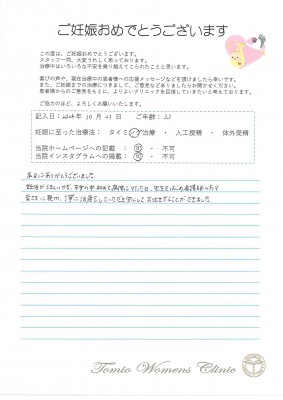 ご妊娠おめでとうございます
この度は、ご妊娠おめでとうございます。
スタッフ一同、大変うれしく思っております。
治療中はいろいろな不安を乗り越えてこられたことと思います。
喜びの声や、現在治療中の患者様への応援メッセージなどを頂けましたら幸いです。
また、ご妊娠までの治療につきまして、ご意見などありましたらお聞かせください。
患者様からのご意見をもとに、よりよいクリニックを目指していきたいと考えております。
ご協力のほど、よろしくお願いいたします。
記入日：2024年 10月 21日 ご年齢：32
妊娠に至った治療法： タイミング治療 ・ 人工授精 ・ 体外受精
当院ホームページへの掲載 ： 可 ・ 不可
当院インスタグラムへの掲載 ： 可 ・ 不可
本当にありがとうございました
Tomio Womens Clinic